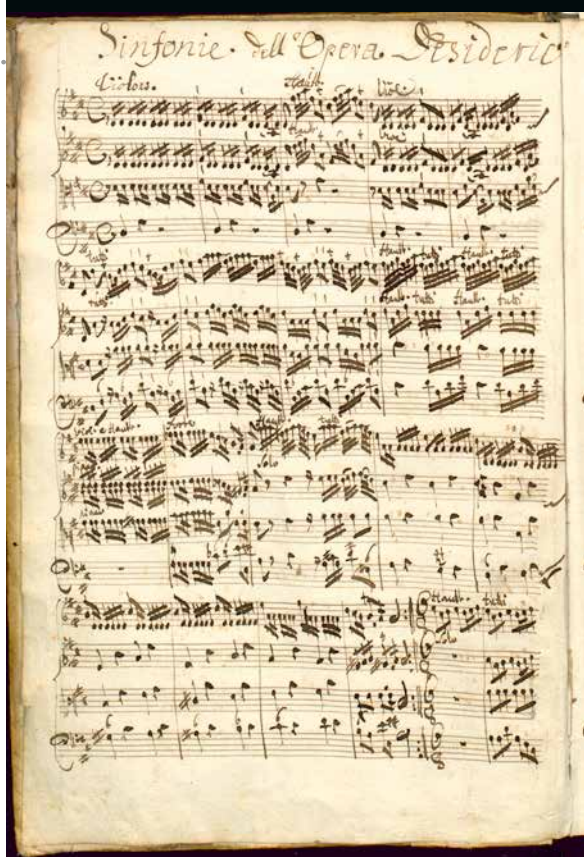 Sinfonie. dell'Opera Desiderio
Violons. Hautb. Viol.
Hautb. Viol.
tutti Hautb. tutti Hautb. tutti
tutti Hautb. tutti Hautb. tutti
Viol. e Hautb. forte Hautb. tutti
Solo
Hautb. tutti
Solo